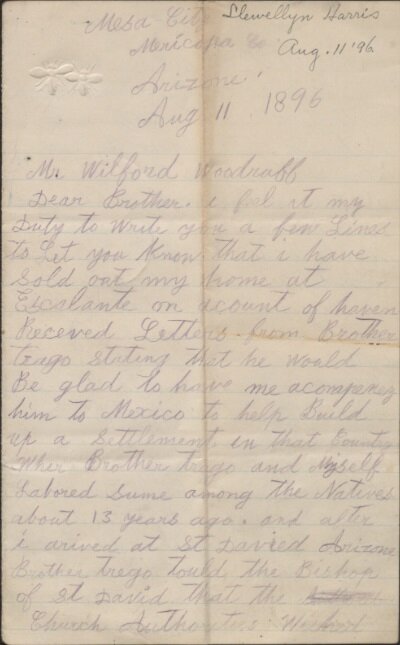 Mesa-City
Llewellyn Harris
Mericopa Co
Aug. 11 '96
Arizone
Aug 11 1896
Mr Wilford Woodruff
Dear Brother. i feel it my
Duty to write you a few Lines
to Let you Know that i have
Sold out my home at
Escalante on acount of haven
Receved Letters from Brother
trago stating that he would
Be glad to have me acompeney
him to Mexico to help Build
up a Settlement in that Country
Wher Brother trego and Myself
Labored Sume among the Natives
about 13 years ago. and after
i arived at St Davied Arizone
Brother trego tould the Bishop
of St David that the
Church Authorities